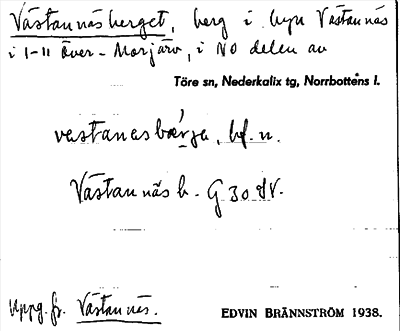 Västannäsberget, berg i byn Västannäs
i 1-11 Över-Morjärv, i NO delen av
Töre sn, Nederkalix tg, Norrbottens l.
vastanasbærja, bf. n.
Västannäs b. G 30 dV.
Uppg. fr. Västannäs.
EDVIN BRÄNNSTRÖM 1938.